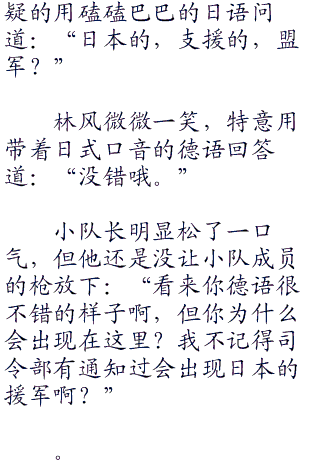 疑的用磕磕巴巴的日语问
道：“日本的，支援的，盟
军？”
林风微微一笑，特意用
带着日式口音的德语回答
道：“没错哦。”
小队长明显松了一口
气，但他还是没让小队成员
的枪放下：“看来你德语很
不错的样子啊，但你为什么
会出现在这里？我不记得司
令部有通知过会出现日本的
援军啊？”
。